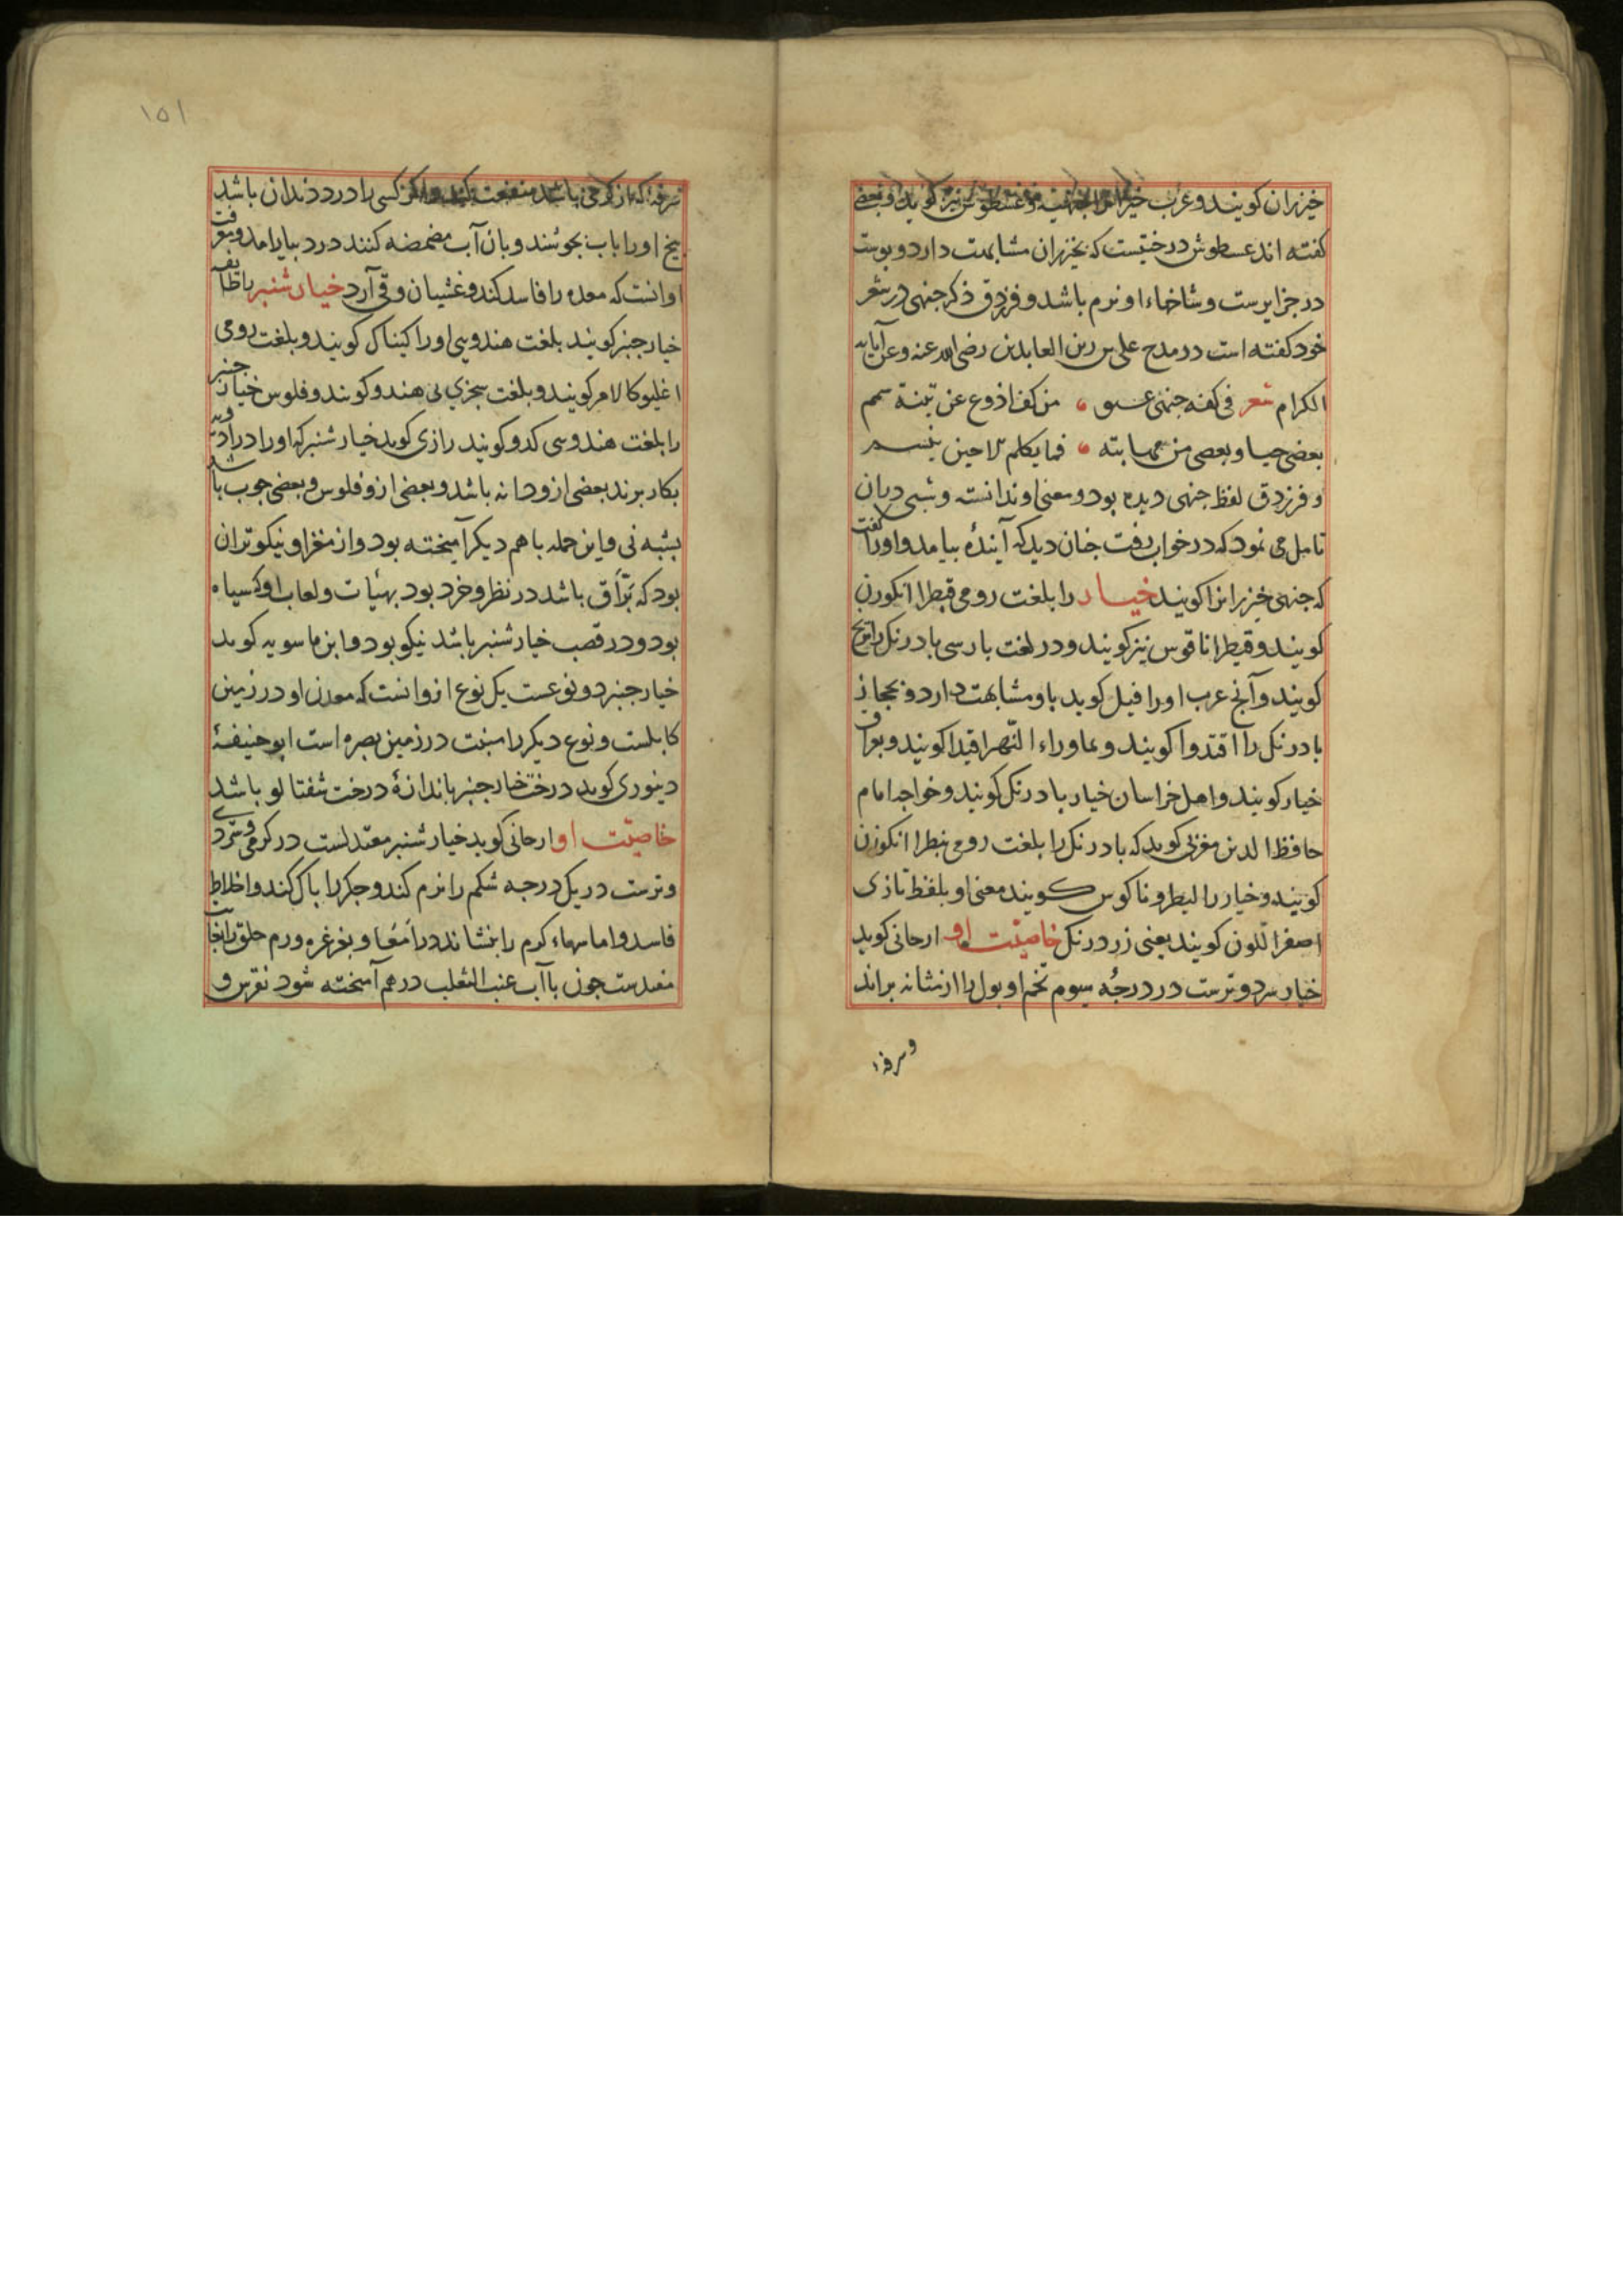 خیزران کویند و عرب
کفته اند عسطوش درختیست که بخیزران مشابهت دارد و بوست
در جزایرست و شاخهاء او نرم باشد و فرزدق ذکر جنهی در شعر
خود کفته است در مدح علی بن زین العابدین رضی الله عنه و عن آبایه
الکرام شعر فی کفه جنهی من کف اروع عن
بغضی حیا و بعصی من مهابته فما یکلم الا حین یبتسم
و فرزدق لفظ جنهی دیده بود و معنی او ندانسته و شبی دران
تامل می نمود که در خواب رفت جنان دید که آینده بیامد و اورا کفت
که جنهی خیزرانرا کویند خیار را بلغت رومی قیطرا انکورن
کویند و قیطرا ناقوس نیز کویند و در لغت بارسی بادرنک را
کویند و آنج عرب اورا فیل کوید باو مشابهت دارد و بحجاز
بادرنک را قتدوا کویند و بماوراء النهر اقیدا کویند و بعراق
خیار کویند و اهل خراسان خیار بادرنک کویند و خواجه امام
حافظ الدین مغزی کوید که بادرنک را بلغت رومی بنطرا انکوزن
کویند و خیار را لیطرو ناکوس کویند معنی او بلفظ تازی
اصفر اللون کویند یعنی زرد رنک خاصیت او ارجانی کوید
خیار سرد و ترست در درجه سیوم تخم او بول را از مثانه براند
و سرفه
۱۵۱
سرفه که از کرمی باشد منفعت کند و اکر کسی را درد دندان باشد
بیخ اورا باب بجوشند و بان آب مضمضه کنند درد بیارامد و مضرت
او انست که معده را فاسد کند و غشیان و قی آرد خیار شنبر
خیار جنبر کویند بلغت هندویی اورا کیناک کویند و بلغت رومی
اغلیوکالامر کویند و بلغت سجزی نی هندو کویند و فلوس خیار جنبر
را بلغت هندوسی کدو کویند رازی کوید خیار شنبر که اورا در ادویه
بکار برند بعضی ازو دانه باشد و بعضی ازو فلوس و بعضی جوب باشد
بشبه نی و این جمله باهم دیکر آمیخته بود و از مغز او نیکوتر ان
بود که براق باشد در نظر و خرد بود بهیات و لعاب او سیاه
بود و در قصب خیار شنبر باشد نیکو بود و ابن ماسویه کوید
خیار جنبر دو نوعست یک نوع ازو انست که معدن او در زمین
کابلست و نوع دیکر را منبت در زمین بصره است ابو حنیفهٔ
دینوری کوید درخت خیار جنبر باندازهٔ درخت شفتالو باشد
خاصیت او ارجانی کوید خیار شنبر معتدلست در کرمی و سردی
و ترست در یک درجه شکم را نرم کند و جکر را باک کند و اخلاط
فاسد و اماسهاء کرم را بنشاند در امعا و بغرغره ورم حلق را
مفیدست جون باآب عنب الثعلب در هم آمیخته شود نقرس و